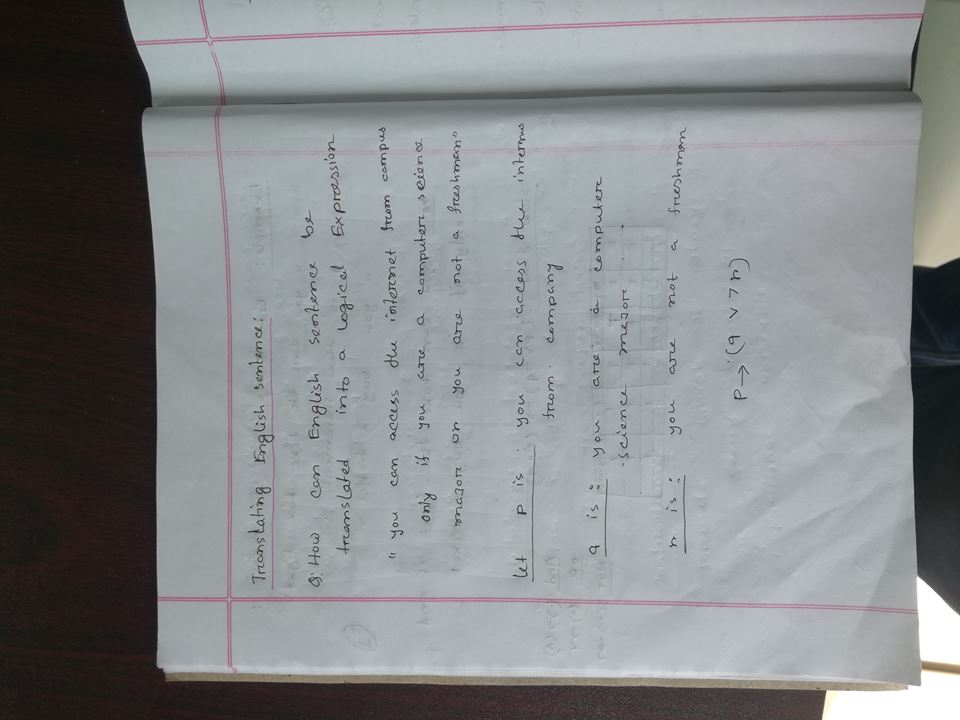 Translating English Sentence:
Q: How can English sentence be
translated into a logical Expression
"you can access the internet from campus
only if you are a computer science
major or you are not a freshman"
let p is you can access the
from company
q is: you are a computer
science major
r is: you are not a freshman
p → (q ∨ ¬ r)